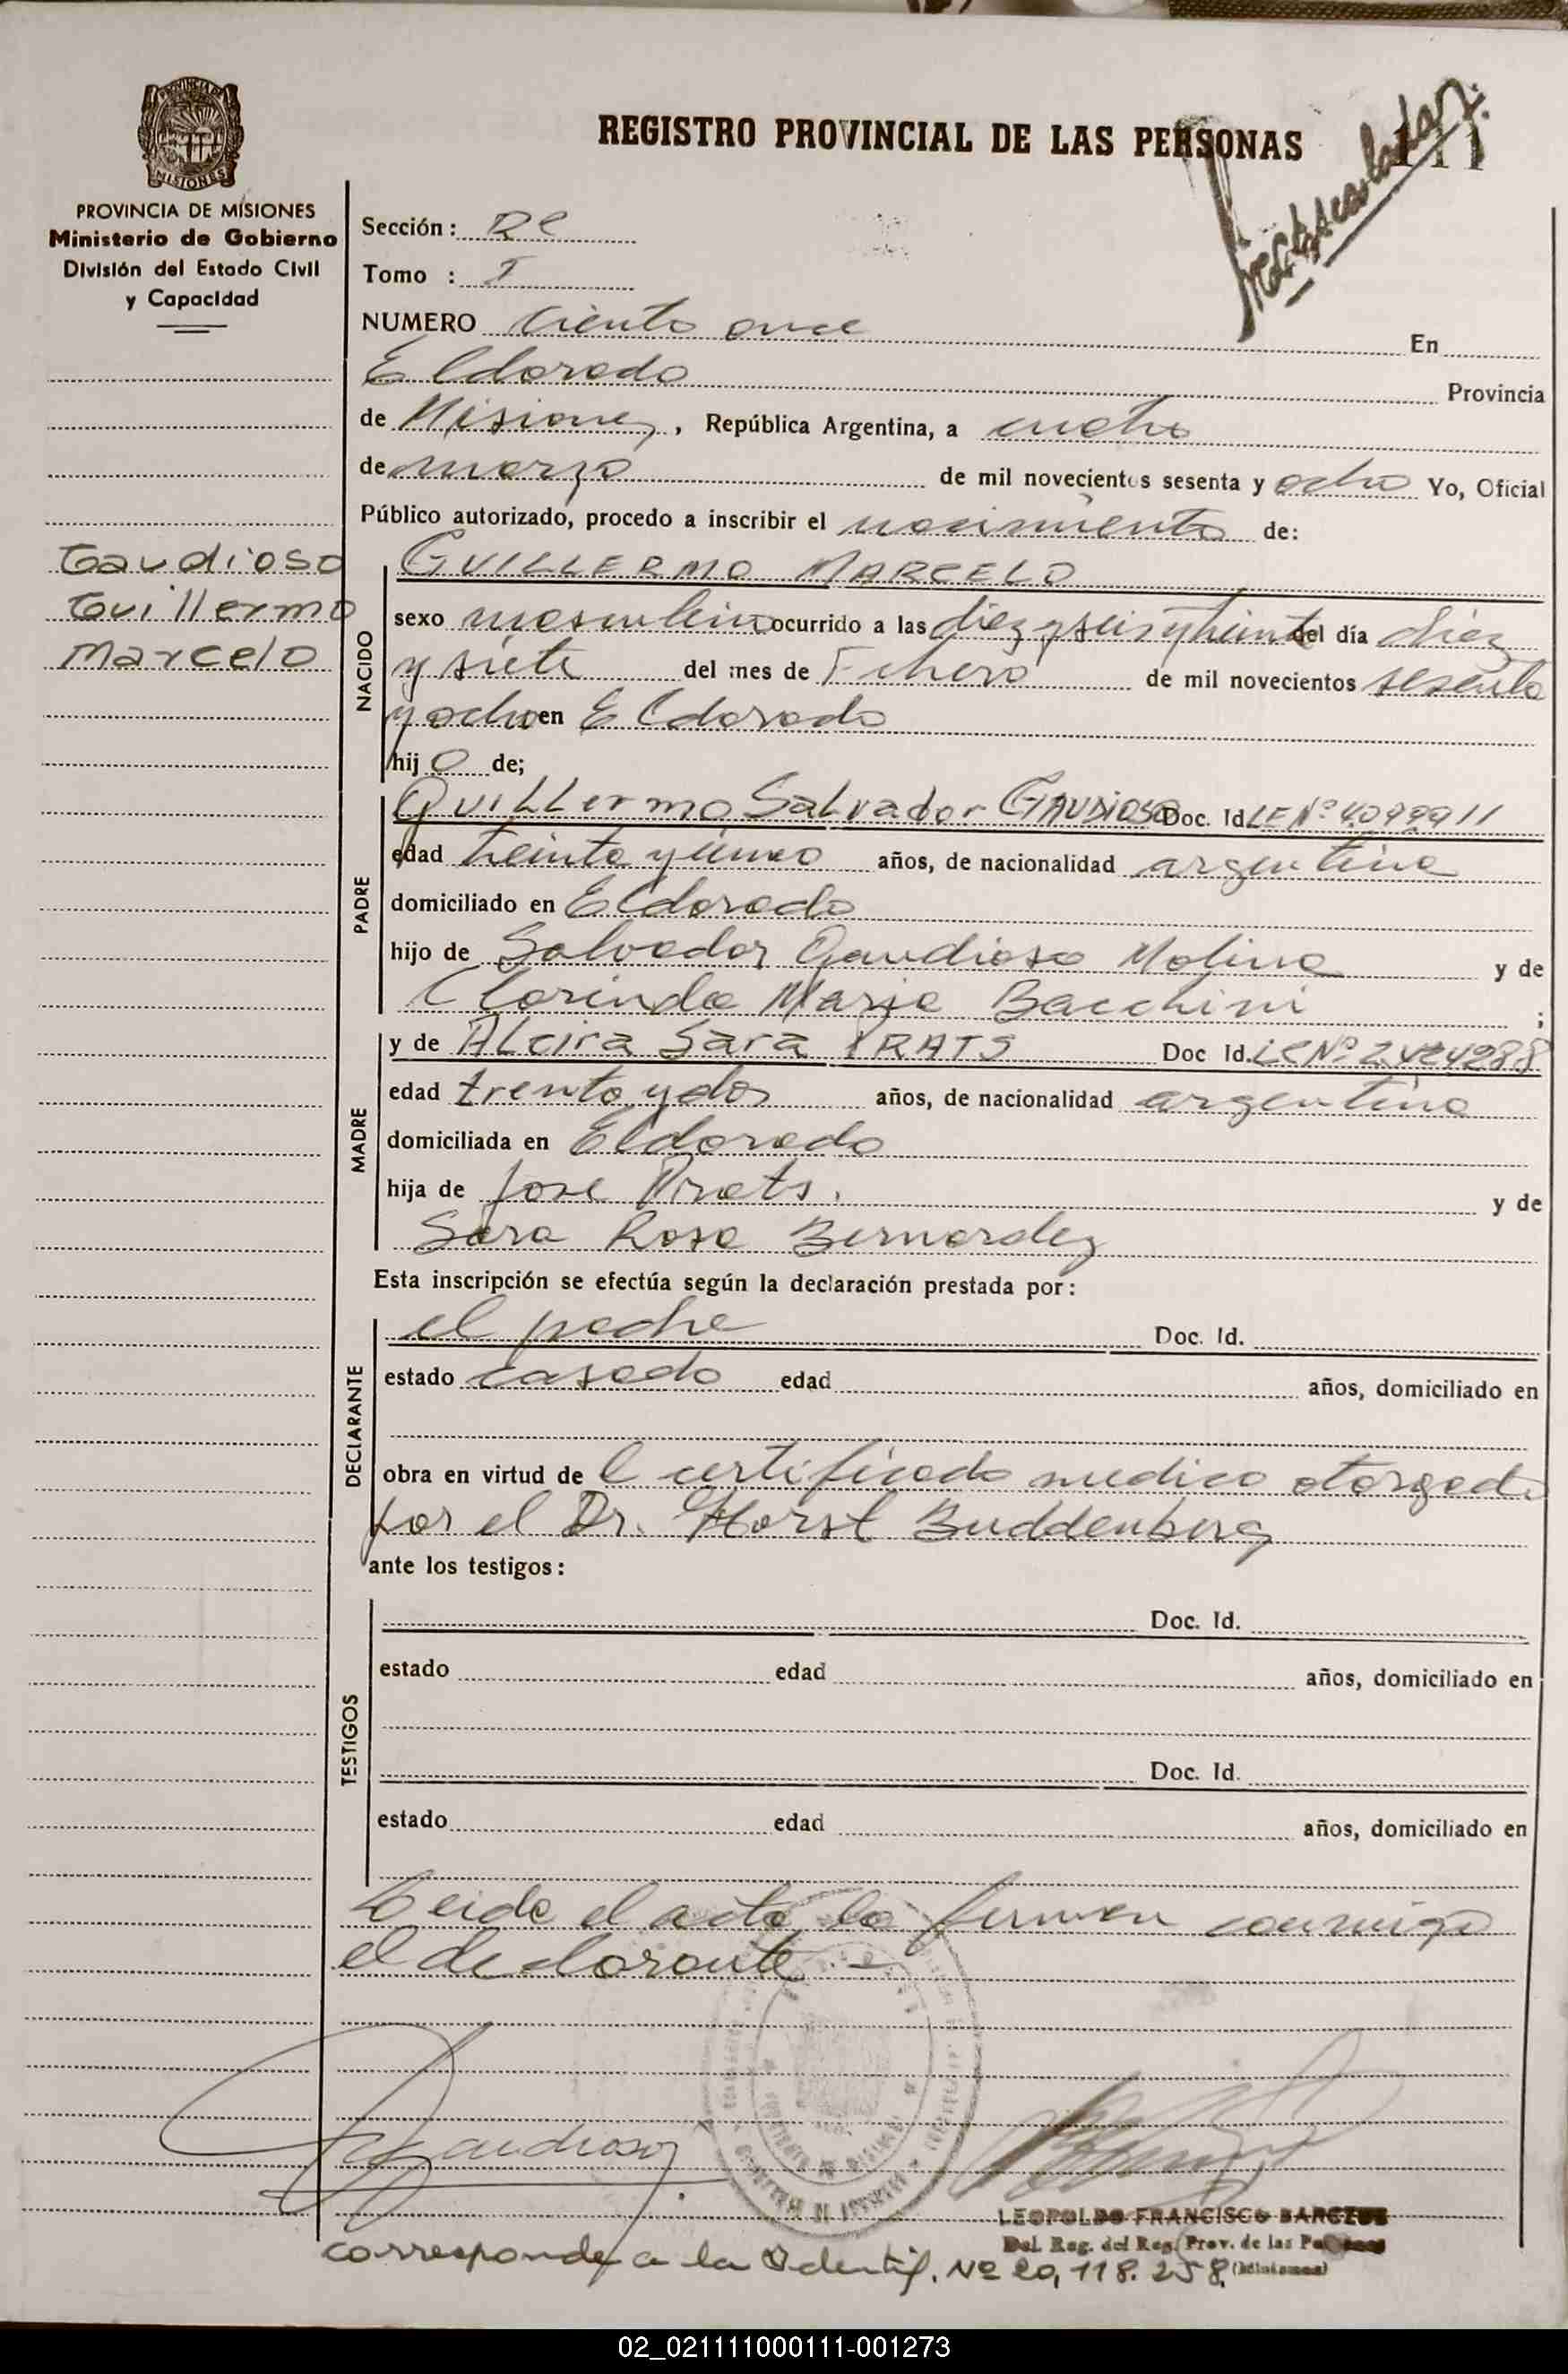 REGISTRO PROVINCIAL DE LAS PERSONAS 111
PROVINCIA DE MISIONES
Ministerio de Gobierno
División del Estado Civil
y Capacidad
Sección:
Tomo : I
NUMERO Ciento once En
Eldorado Provincia
de Misiones, República Argentina, a cuatro
de marzo de mil novecientos sesenta y ocho Yo, Oficial
Público autorizado, procedo a inscribir el nacimiento de:
Gaudioso
Guillermo
Marcelo
NACIDO
GUILLERMO MARCELO
sexo masculino ocurrido a las diez y seis y treinta del día diez
y siete del mes de Febrero de mil novecientos sesenta
y ocho en Eldorado
hijo de;
PADRE
Guillermo Salvador GAUDIOSO Doc. Id. LE Nº 4.099911
edad treinta y cinco años, de nacionalidad argentina
domiciliado en Eldorado
hijo de Salvador Gaudioso Molina y de
Clorinda Maria Bacchini ;
MADRE
y de Alcira Sara PRATS Doc Id. LC Nº
edad trenta y dos años, de nacionalidad argentina
domiciliada en Eldorado
hija de Jose Prats. y de
Sara Rosa Bernardez
Esta inscripción se efectúa según la declaración prestada por:
DECLARANTE
el padre Doc. Id.
estado casado edad años, domiciliado en
obra en virtud del certificado medico otorgado
por el Dr. Horst Buddenberg
ante los testigos:
TESTIGOS
Doc. Id.
estado edad años, domiciliado en
Doc. Id.
estado edad años, domiciliado en
Leida el acta, la firman conmigo
el declarante -
Gaudioso
LEOPOLDO FRANCISCO
Del. Reg. del Reg. Prov. de las
(Misiones)
corresponde a la Identif. Nº 20,118.258
02_021111000111-001273